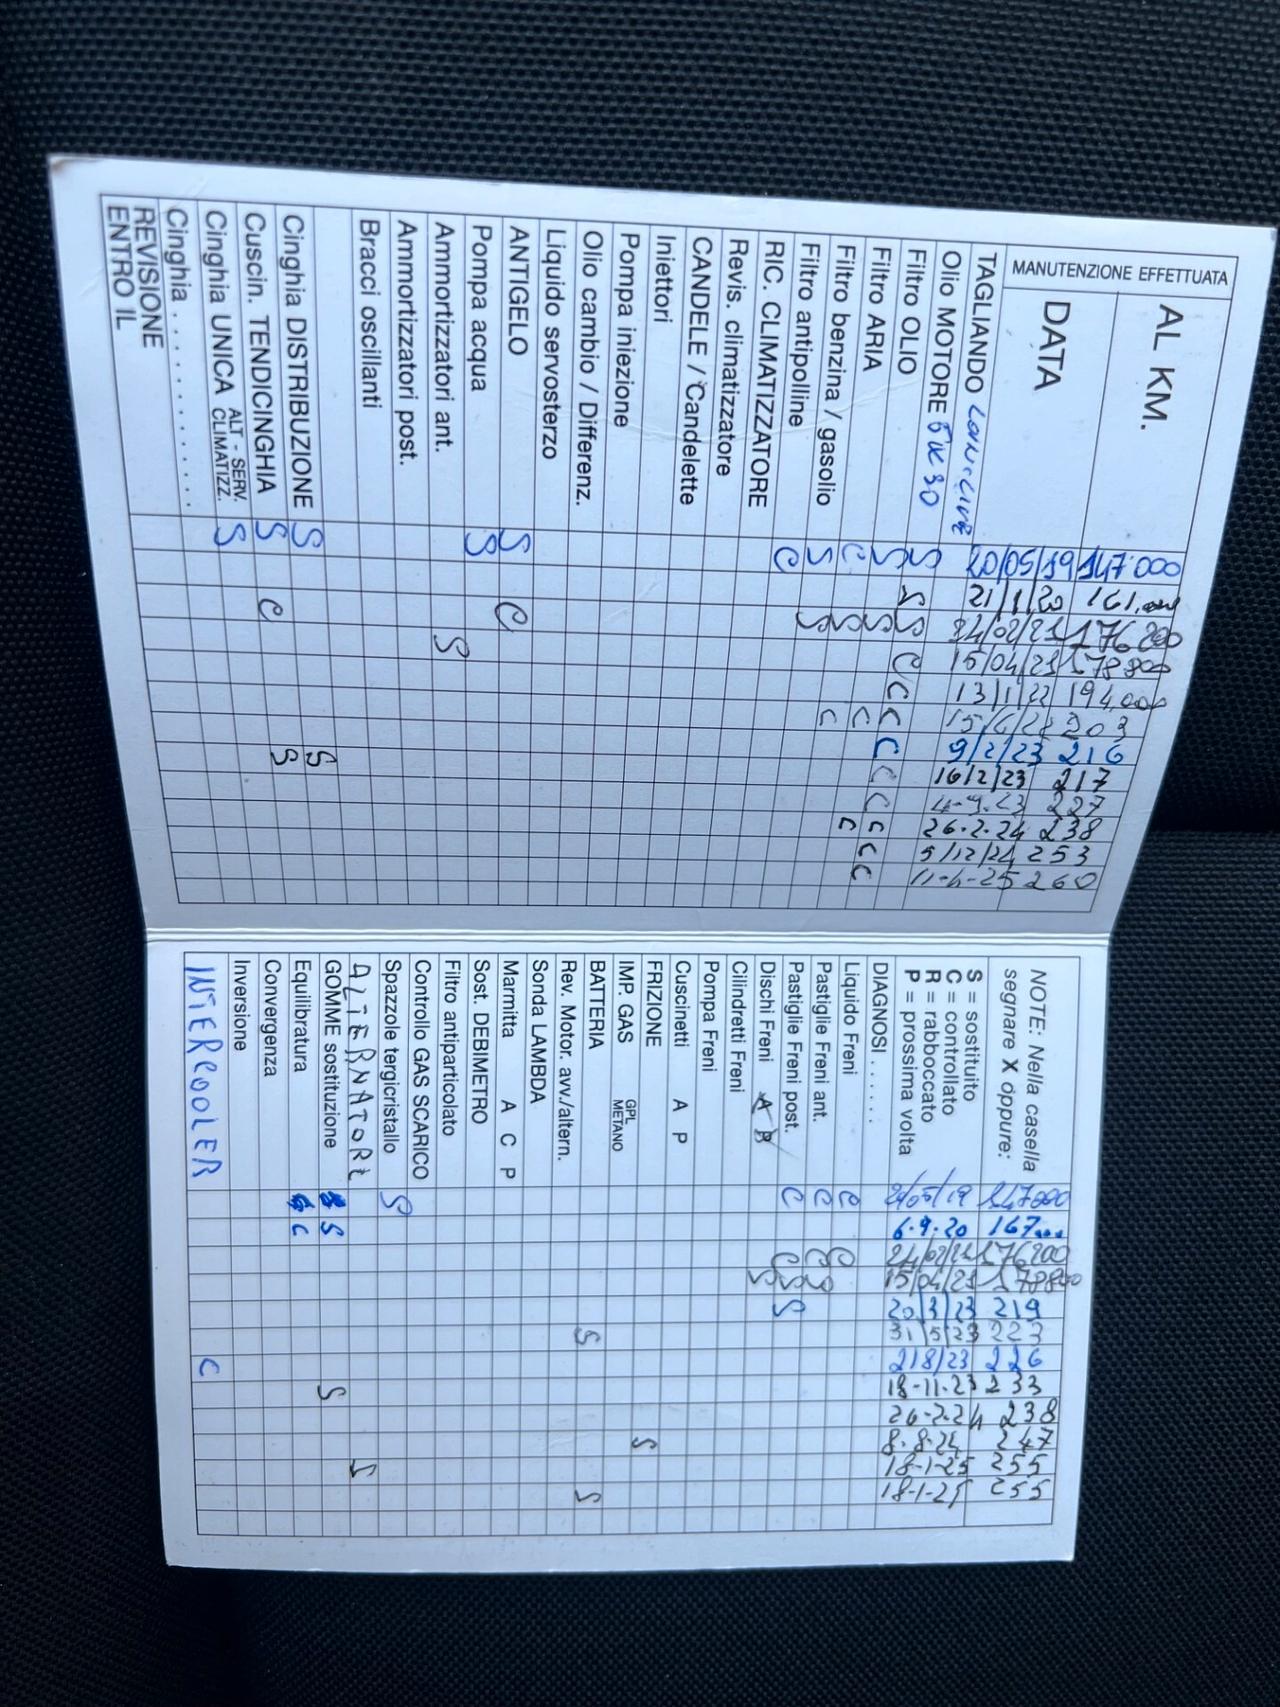 MANUTENZIONE EFFETTUATA
AL KM. 147.000 176200 178800 194,000 203 216 217 227 238 253 260
DATA 20/05/19 21/1/20 24/02/21 15/04/21 13/1/22 9/2/23 16/2/23 26.2.24 5/12/24 11-4-25
TAGLIANDO
Olio MOTORE 5W30
FILTRO OLIO S S S C C C C C C C C C
Filtro ARIA S S C C
Filtro benzina / gasolio C S C C
Filtro antipolline S S
RIC. CLIMATIZZATORE C
Revis. climatizzatore
CANDELE / Candelette
Iniettori
Pompa iniezione
Olio cambio / Differenz.
Liquido servosterzo
ANTIGELO S C
Pompa acqua S
Ammortizzatori ant. S
Ammortizzatori post.
Bracci oscillanti
Cinghia DISTRIBUZIONE S S
Cuscin. TENDICINGHIA S C S
Cinghia UNICA ALT - SERV. CLIMATIZZ. S
Cinghia . . . . . . . . . . .
REVISIONE
ENTRO IL
NOTE: Nella casella
segnare X oppure:
S = sostituito
C = controllato
R = rabboccato
P = prossima volta
147000 167... 176200 178800 219 223 226 233 238 247 255 255
20/05/19 6.9.20 24/02/21 15/04/21 20/3/23 31/5/23 2/8/23 18-11-23 26-2-24 8-8-24 18-1-25 18-1-25
DIAGNOSI . . . . . . .
Liquido Freni C C
Pastiglie Freni ant. C C
Pastiglie Freni post. C C S S
Dischi Freni A P S
Cilindretti Freni
Pompa Freni
Cuscinetti A P
FRIZIONE
IMP. GAS GPL METANO S
BATTERIA
Rev. Motor. avv./altern. S S
Sonda LAMBDA
Marmitta A C P
Sost. DEBIMETRO
Filtro antiparticolato
Controllo GAS SCARICO
Spazzole tergicristallo S
ALTERNATORE S
GOMME sostituzione S S
Equilibratura C
Convergenza
Inversione
INTERCOOLER C